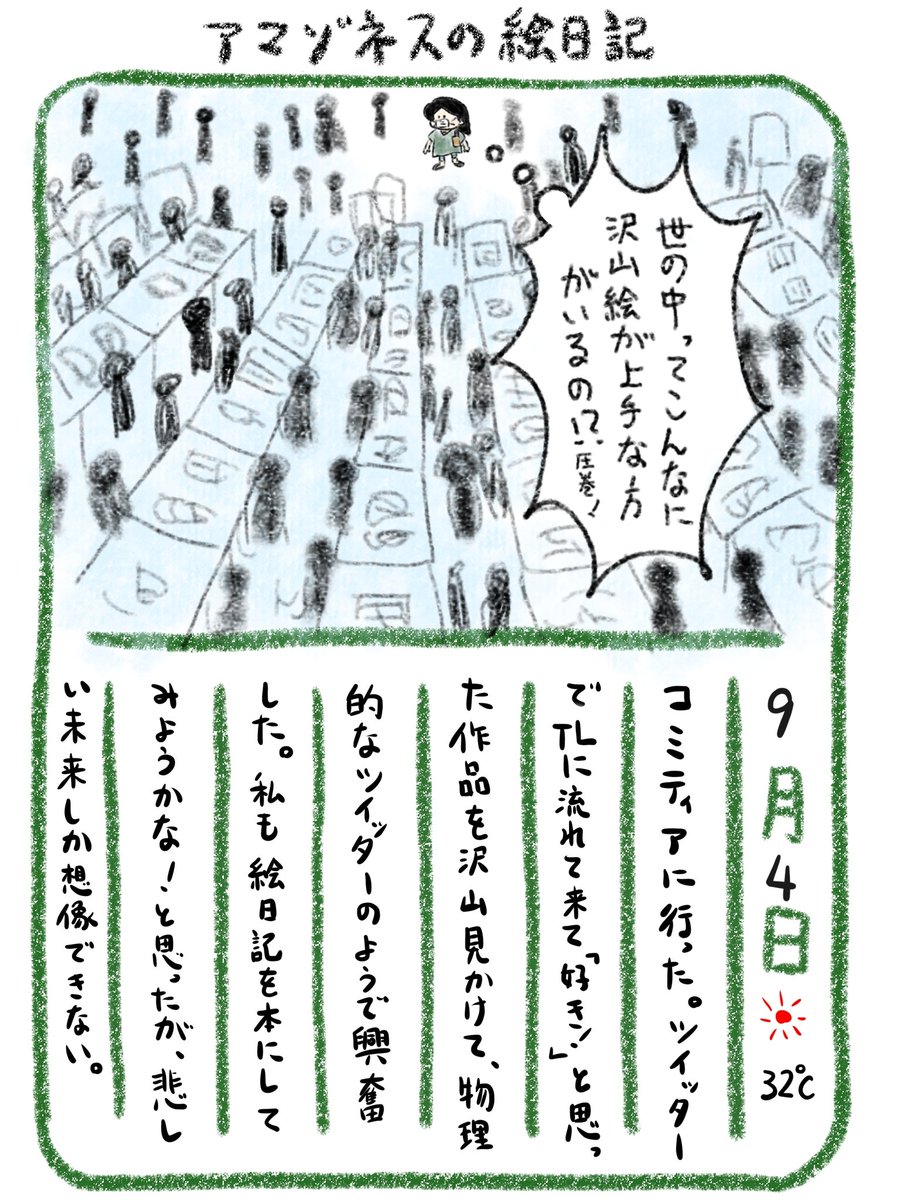 アマゾネスの絵日記
世の中ってこんなに
沢山絵が上手な方
がいるの!?圧巻!
9月4日
32℃
コミティアに行った。ツイッター
でTLに流れて来て「好きン」と思っ
た作品を沢山見かけて、物理
的なツイッターのようで興奮
した。私も絵日記を本にして
みようかな!と思ったが、悲し
い未来しか想像できない。